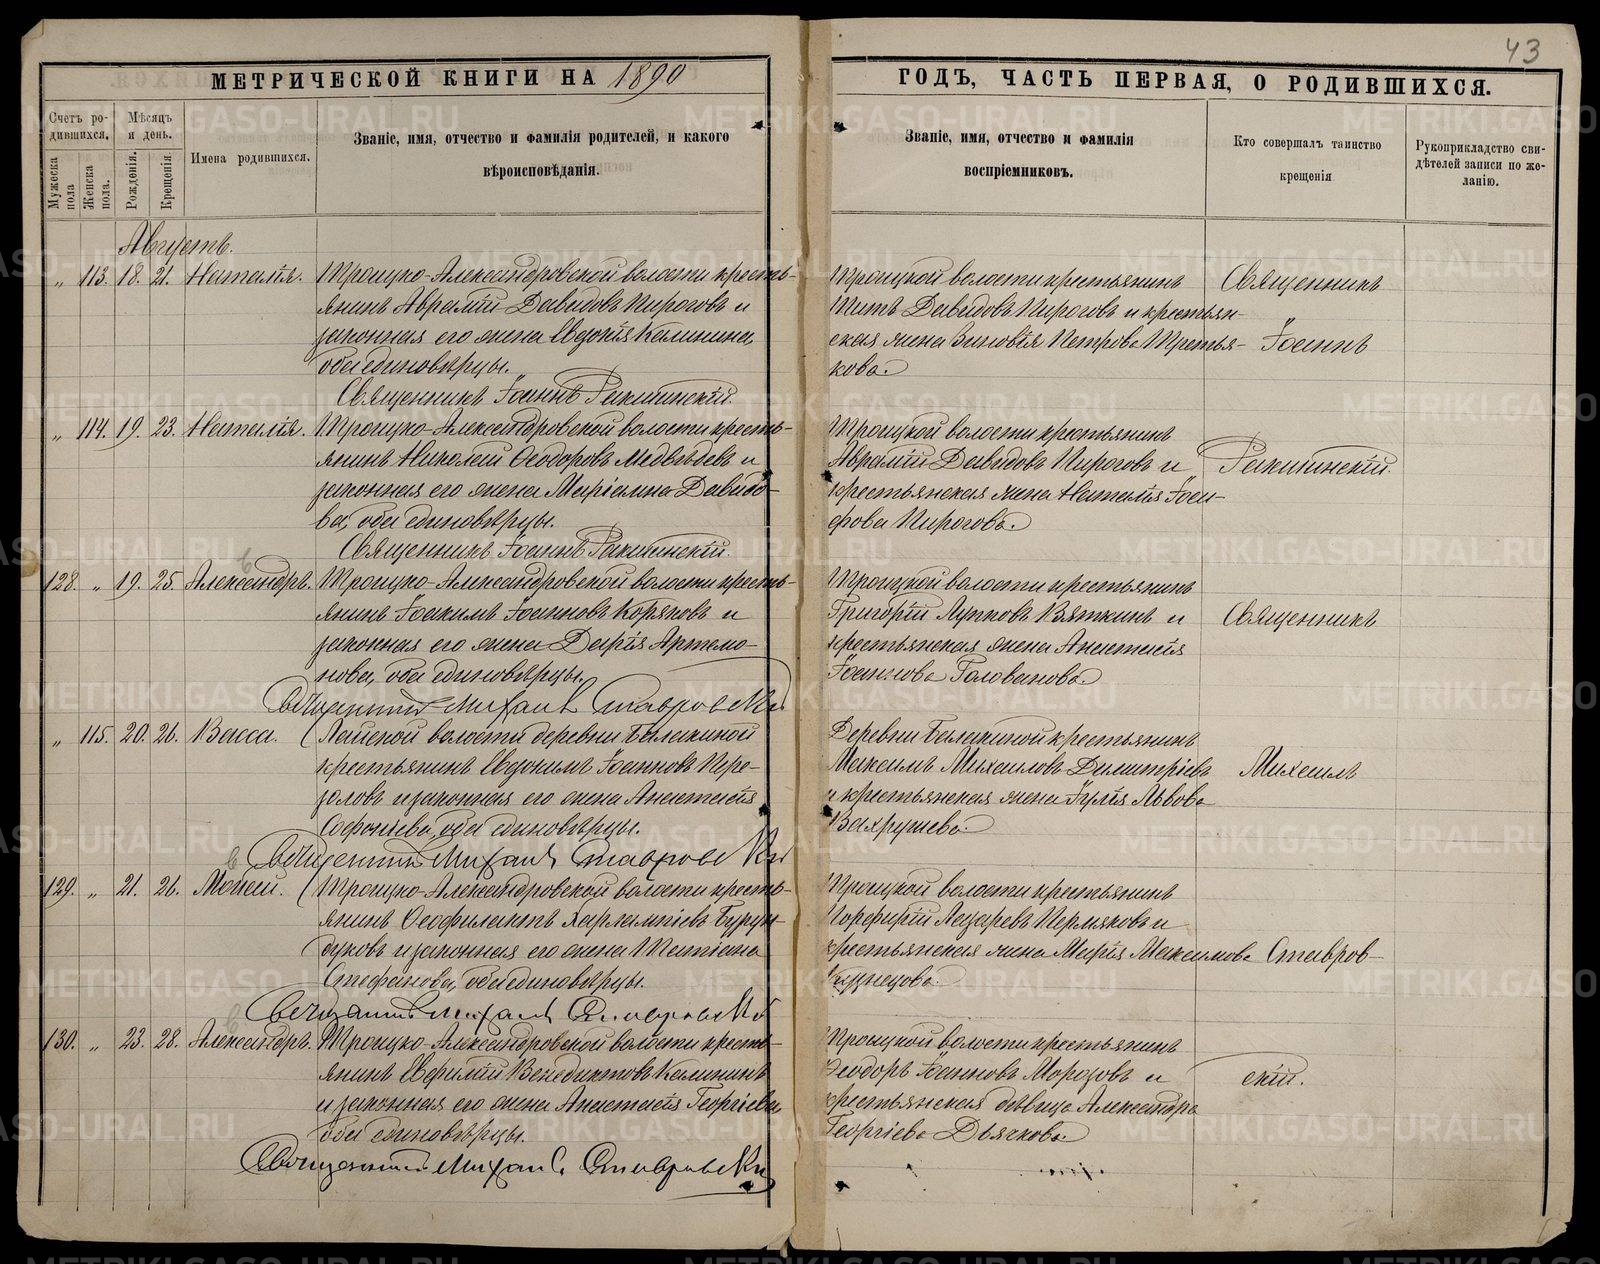 43
МЕТРИЧЕСКОЙ КНИГИ НА 1890
ГОДЪ, ЧАСТЬ ПЕРВАЯ, О РОДИВШИХСЯ.
Счетъ родившихся.
Мужеска пола
Женска пола.
Мѣсяцъ и день.
Рожденія.
Крещенія.
Имена родившихся.
Званіе, имя, отчество и фамилія родителей, и какого
вѣроисповѣданія.
Званіе, имя, отчество и фамилія
воспріемниковъ.
Кто совершалъ таинство
крещенія
Рукоприкладство сви-
дѣтелей записи по же-
ланію.
Августъ.
„ 113. 18. 21. Наталія. Троицко-Александровской волости кресть-
янинъ Аврамій Давидовъ Пироговъ и
законная его жена Евдокія Калинина,
оба единовѣрцы.
Священникъ Іоаннъ Ракитинскій.
Троицкой волости крестьянинъ
Титъ Давидовъ Пироговъ и крестьян-
ская жена Зиновія Петрова Третья-
кова.
Священникъ
Іоаннъ
„ 114. 19. 23. Наталія. Троицко-Александровской волости кресть-
янинъ Николай Ѳеодоровъ Медвѣдевъ и
законная его жена Маріамна Давидо-
ва, оба единовѣрцы.
Священникъ Іоаннъ Ракитинскій.
Троицкой волости крестьянинъ
Аврамій Давидовъ Пироговъ и
крестьянская жена Наталія Іоси-
фова Пирогова.
Ракитинскій.
128. „ 19. 25. Александръ. Троицко-Александровской волости кресть-
янинъ Іоакимъ Іоанновъ Коряковъ и
законная его жена Дарія Артемо-
нова, оба единовѣрцы.
Священникъ Михаилъ Ставровскій
Троицкой волости крестьянинъ
Григорій Лупповъ Вяткинъ и
крестьянская жена Анастасія
Іоаннова Голованова.
Священникъ
„ 115. 20. 26. Васса. Лайской волости деревни Балакиной
крестьянинъ Евдокимъ Іоанновъ Пре-
золовъ и законная его жена Анастасія
Софоніева, оба единовѣрцы.
Священникъ Михаилъ Ставровскій
Деревни Балакиной крестьянинъ
Максимъ Михаиловъ Димитріевъ
и крестьянская жена Іулія Львова
Вахрушева.
Михаилъ
129. „ 21. 26. Моисей. Троицко-Александровской волости кресть-
янинъ Ѳеофилактъ Харлампіевъ Бурун-
дуковъ и законная его жена Татіана
Стефанова, оба единовѣрцы.
Священникъ Михаилъ Ставровскій
Троицкой волости крестьянинъ
Порфирій Лазаревъ Пермяковъ и
крестьянская жена Марія Максимова
Кузнецова.
Ставров-
130. „ 23. 28. Александръ. Троицко-Александровской волости кресть-
янинъ Евфимій Венедиктовъ Калининъ
и законная его жена Анастасія Георгіева,
оба единовѣрцы.
Священникъ Михаилъ Ставровскій
Троицкой волости крестьянинъ
Ѳеодоръ Іоанновъ Морозовъ и
крестьянская дѣвица Александра
Георгіева Дьячкова.
скій.
METRIKI.GASO-URAL.RU